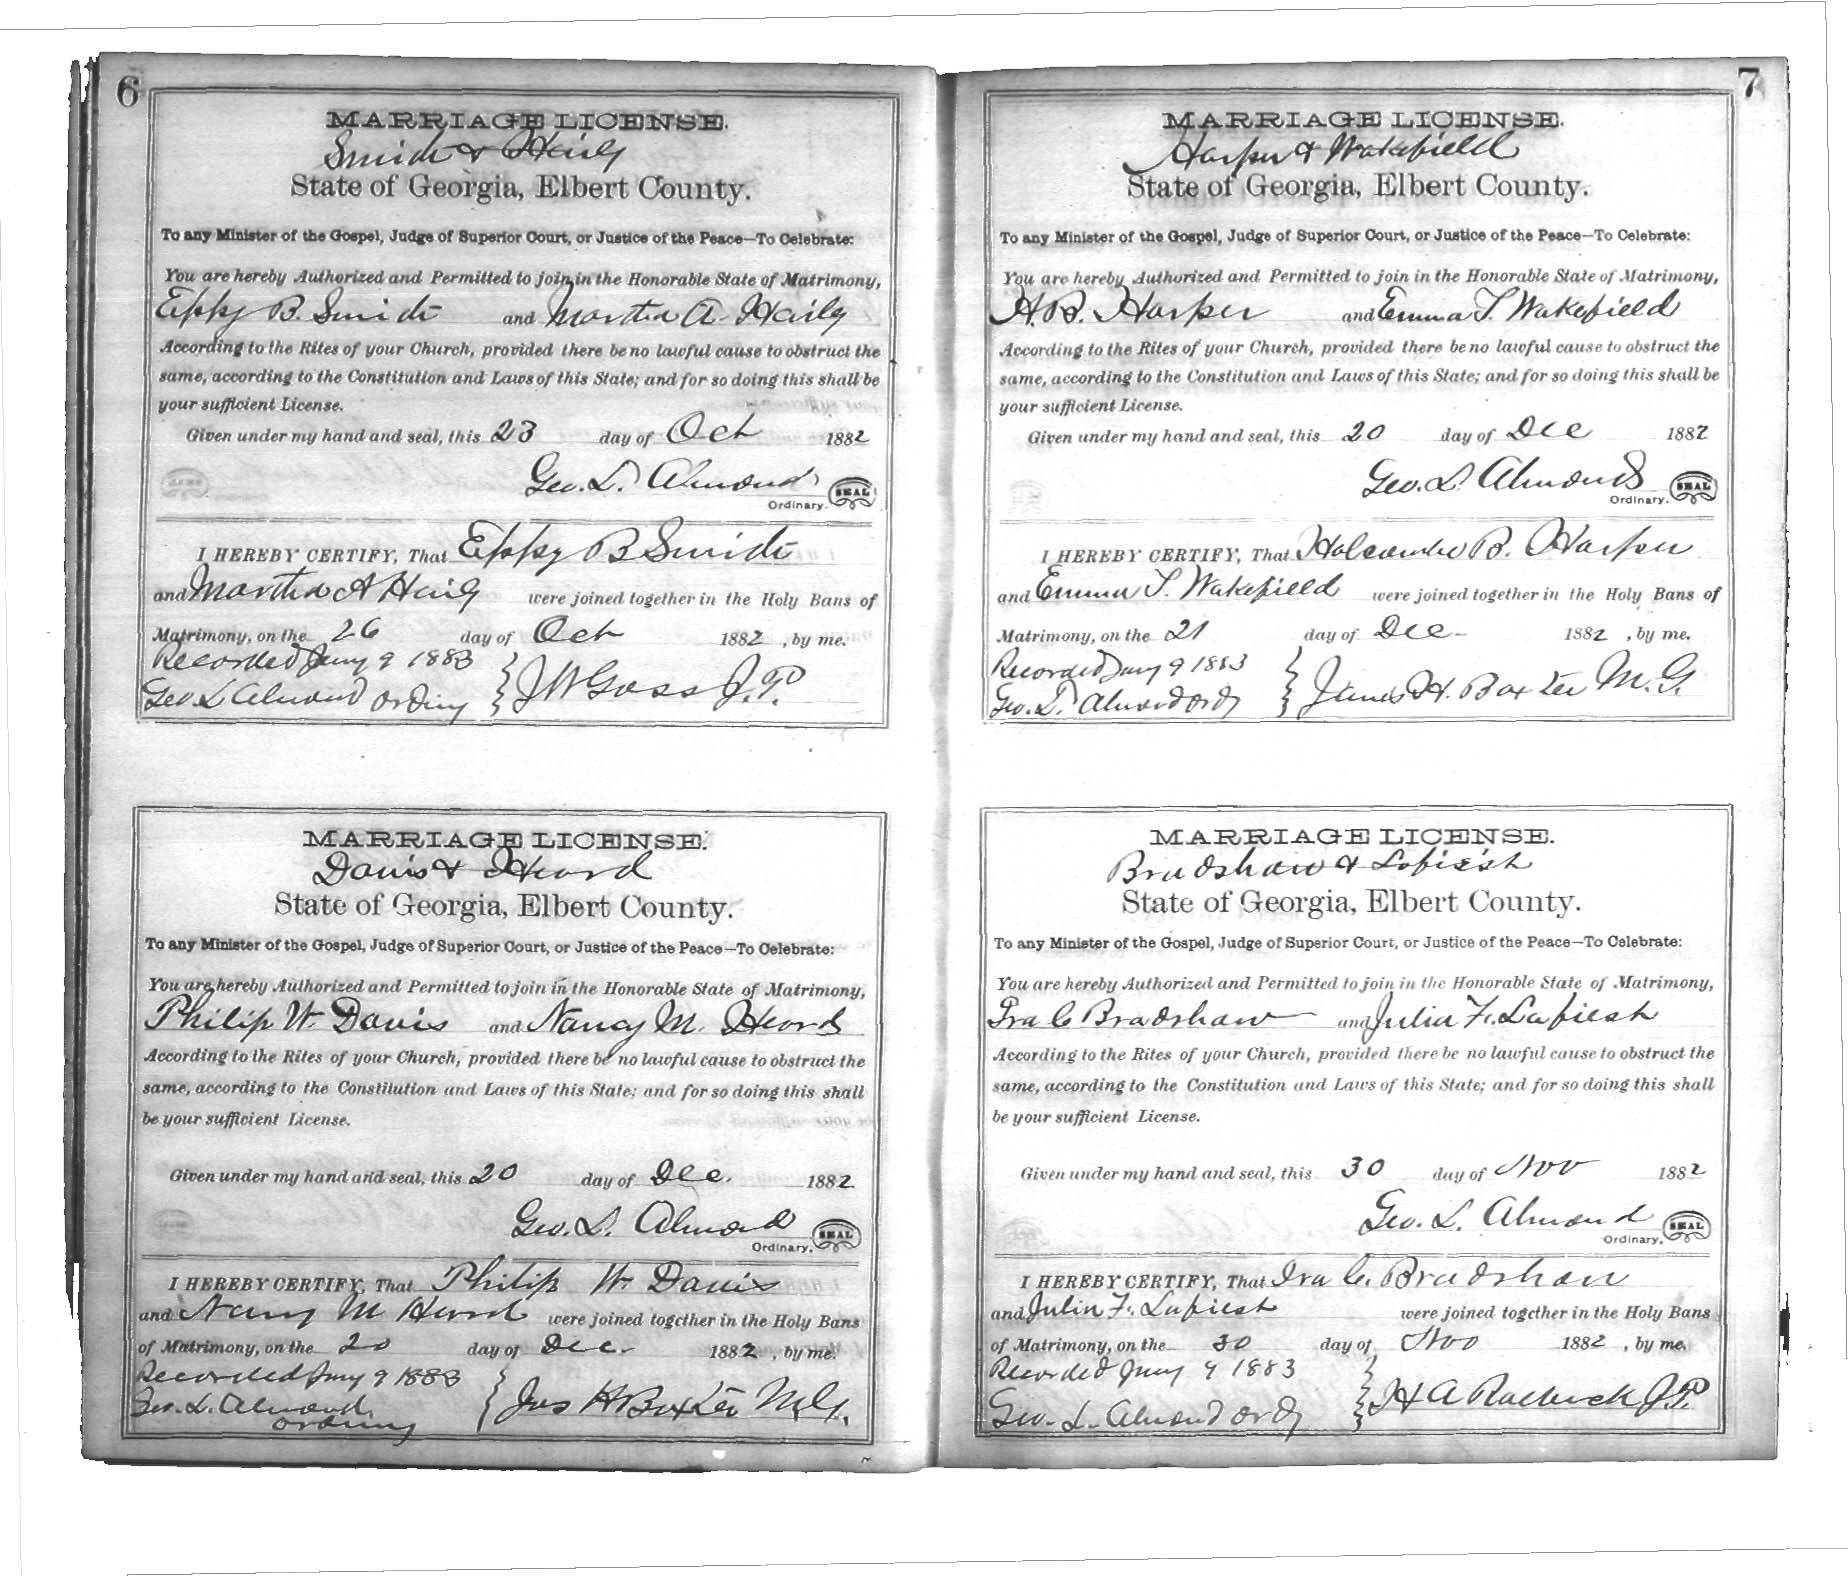 6
MARRIAGE LICENSE.
Smith & Haily
State of Georgia, Elbert County.
To any Minister of the Gospel, Judge of Superior Court, or Justice of the Peace—To Celebrate:
You are hereby Authorized and Permitted to join in the Honorable State of Matrimony,
Eppy B. Smith and Martha A. Haily
According to the Rites of your Church, provided there be no lawful cause to obstruct the
same, according to the Constitution and Laws of this State; and for so doing this shall be
your sufficient License.
Given under my hand and seal, this 23 day of Oct 1882
Geo. L. Almond SEAL
Ordinary.
I HEREBY CERTIFY, That Eppy B Smith
and Martha A Haily were joined together in the Holy Bans of
Matrimony, on the 26 day of Oct 1882, by me.
Recorded Jany 9 1883
Geo. L Almond Ordiny } J W Goss J.P.
MARRIAGE LICENSE.
Davis & Heard
State of Georgia, Elbert County.
To any Minister of the Gospel, Judge of Superior Court, or Justice of the Peace—To Celebrate:
You are hereby Authorized and Permitted to join in the Honorable State of Matrimony,
Philip W. Davis and Nancy M. Heard
According to the Rites of your Church, provided there be no lawful cause to obstruct the
same, according to the Constitution and Laws of this State; and for so doing this shall
be your sufficient License.
Given under my hand and seal, this 20 day of Dec. 1882
Geo. L. Almond SEAL
Ordinary.
I HEREBY CERTIFY, That Philip W. Davis
and Nancy M Heard were joined together in the Holy Bans
of Matrimony, on the 20 day of Dec. 1882, by me.
Recorded Jany 9 1883
Geo. L. Almond } Jas H Baxter M.G.
Ordiny
7
MARRIAGE LICENSE.
Harper & Wakefield
State of Georgia, Elbert County.
To any Minister of the Gospel, Judge of Superior Court, or Justice of the Peace—To Celebrate:
You are hereby Authorized and Permitted to join in the Honorable State of Matrimony,
H. B. Harper and Emma T. Wakefield
According to the Rites of your Church, provided there be no lawful cause to obstruct the
same, according to the Constitution and Laws of this State; and for so doing this shall be
your sufficient License.
Given under my hand and seal, this 20 day of Dec 1882
Geo. L. Almond SEAL
Ordinary.
I HEREBY CERTIFY, That Holcombe B. Harper
and Emma T. Wakefield were joined together in the Holy Bans of
Matrimony, on the 21 day of Dec 1882, by me.
Recorded Jany 9 1883
Geo. L. Almond Ordy } James H. Baxter M.G.
MARRIAGE LICENSE.
Bradshaw & Lofiesh
State of Georgia, Elbert County.
To any Minister of the Gospel, Judge of Superior Court, or Justice of the Peace—To Celebrate:
You are hereby Authorized and Permitted to join in the Honorable State of Matrimony,
Ira C Bradshaw and Julia F.
According to the Rites of your Church, provided there be no lawful cause to obstruct the
same, according to the Constitution and Laws of this State; and for so doing this shall
be your sufficient License.
Given under my hand and seal, this 30 day of Nov 1882
Geo. L. Almond SEAL
Ordinary.
I HEREBY CERTIFY, That Ira C. Bradshaw
and Julia F. were joined together in the Holy Bans
of Matrimony, on the 30 day of Nov 1882, by me.
Recorded Jany 9 1883
Geo. L. Almond Ordy } H A Roebuck J.P.